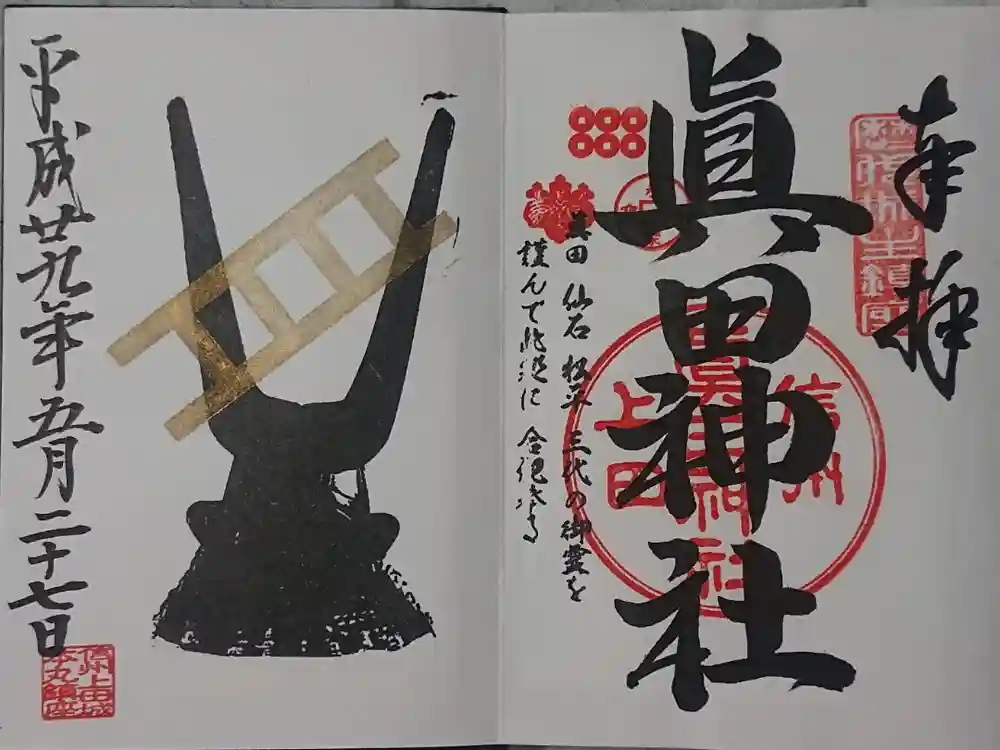 奉拝
眞田神社
信州
眞田神社
上田
真田 仙石 松平 三代の御霊を
謹んで此処に合祀奉る
平成廿九年五月二十七日
上田城
本丸鎮座